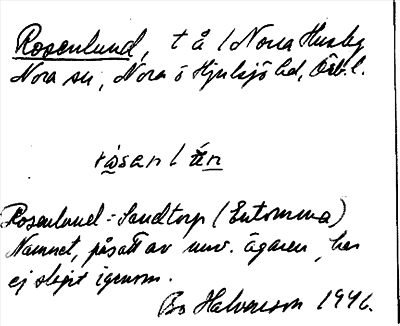 Rosenlund, t å / Norra Husby
Nora sn, Nora o Hjulsjö hd, Örb. l.
Rosenlund = Sandtorp (Entomma)
Namnet, påsatt av nuv. ägaren, har
ej slagit igenom.
Bo Halvorson 1946.